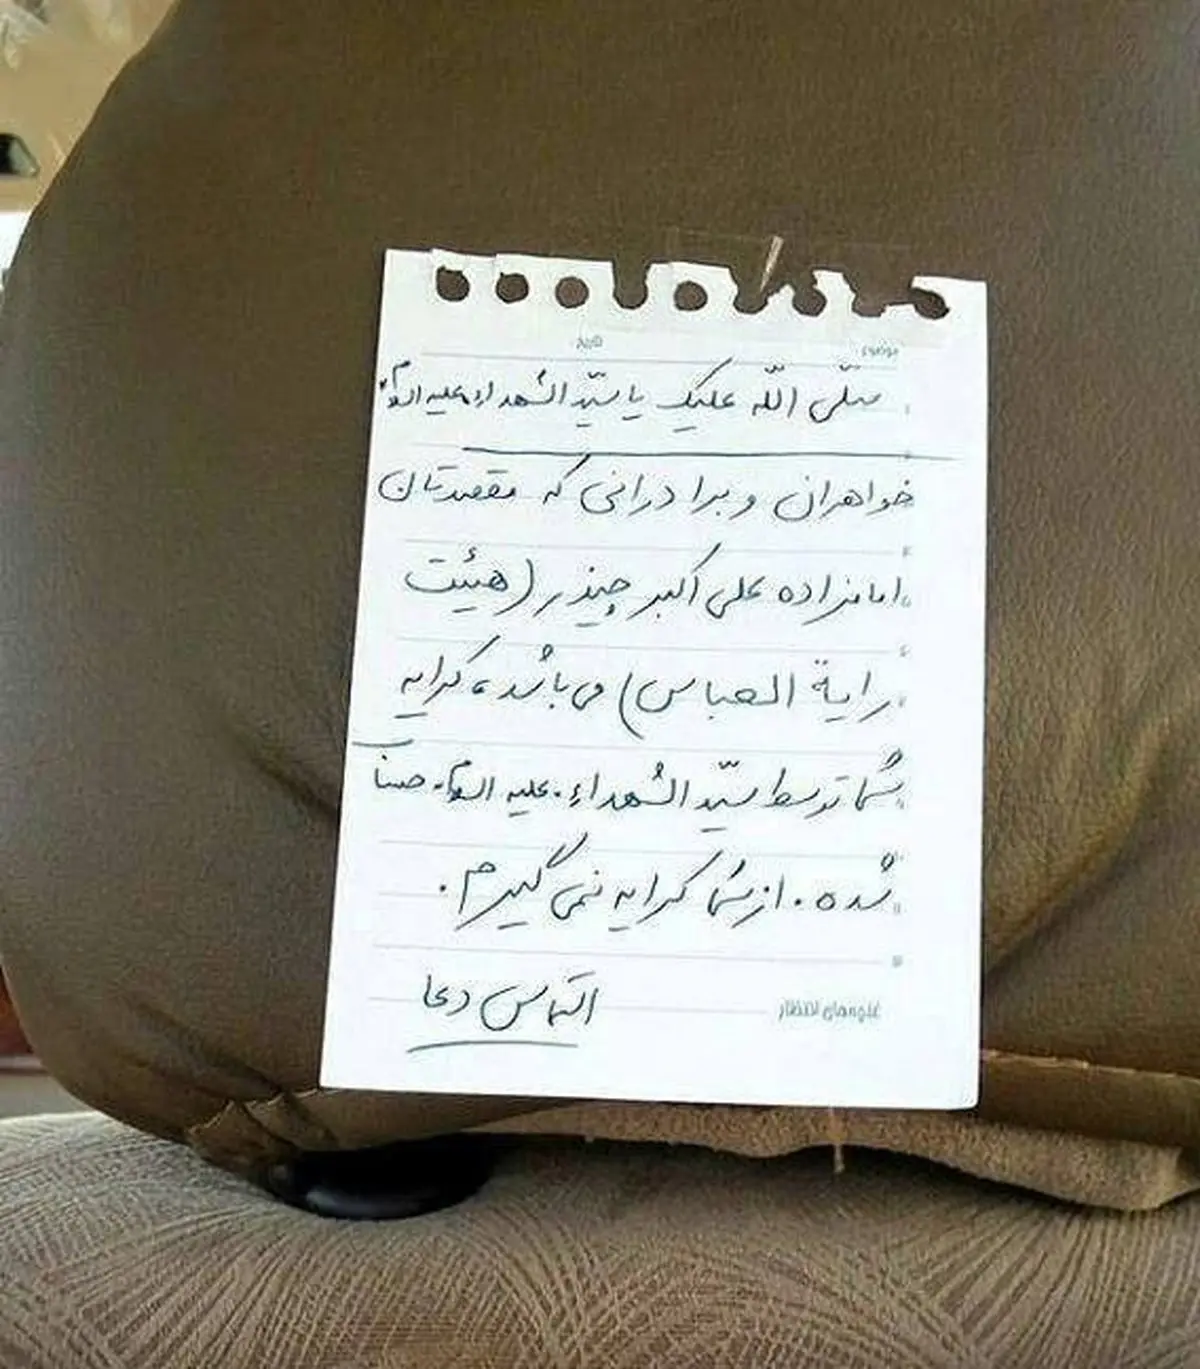 موضوع تاریخ
صلّی اللّه علیک یا سیّد الشهداء علیه السلام
خواهران و برادرانی که مقصدتان
امامزاده علی اکبر چیذر (هیئت
رایة العباس) می باشد، کرایه
شما توسط سیّد الشهداء علیه السلام حساب
شده. از شما کرایه نمی گیرم.
التماس دعا